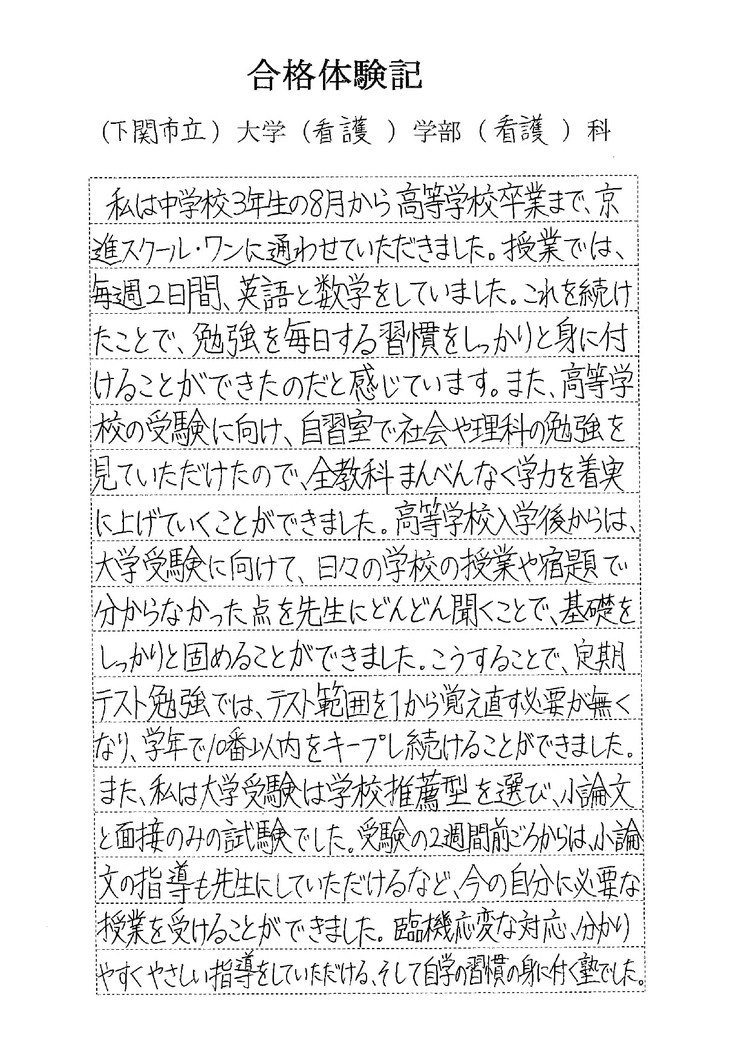 合格体験記
(下関市立) 大学 (看護 ) 学部 ( 看護 ) 科
私は中学校3年生の8月から高等学校卒業まで、京
進スクール・ワンに通わせていただきました。授業では、
毎週2日間、英語と数学をしていました。これを続け
たことで、勉強を毎日する習慣をしっかりと身に付
けることができたのだと感じています。また、高等学
校の受験に向け、自習室で社会や理科の勉強を
見ていただけたので、全教科まんべんなく学力を着実
に上げていくことができました。高等学校入学後からは、
大学受験に向けて、日々の学校の授業や宿題で
分からなかった点を先生にどんどん聞くことで、基礎を
しっかりと固めることができました。こうすることで、定期
テスト勉強では、テスト範囲を1から覚え直す必要が無く
なり、学年で10番以内をキープし続けることができました。
また、私は大学受験は学校推薦型を選び、小論文
と面接のみの試験でした。受験の2週間前ごろからは、小論
文の指導も先生にしていただけるなど、今の自分に必要な
授業を受けることができました。臨機応変な対応、分かり
やすくやさしい指導をしていただける、そして自学の習慣の身に付く塾でした。